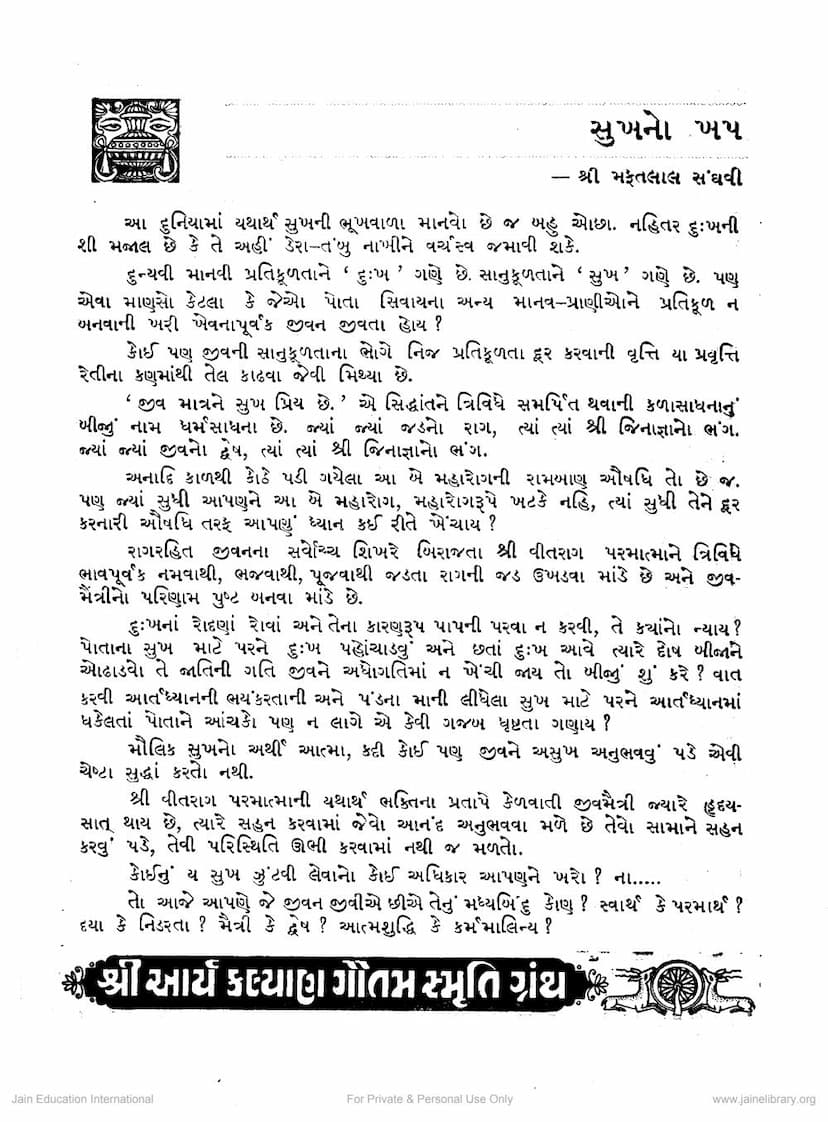 સુખનો ખપ
— શ્રી મફતલાલ સંઘવી
આ દુનિયામાં યથાર્થ સુખની ભૂખવાળા માનવો છે જ બહુ ઓછા. નહિતર દુઃખની
શી મજાલ છે કે તે અહીં ડેરા-તંબુ નાખીને વર્ચસ્વ જમાવી શકે.
દુન્યવી માનવી પ્રતિકૂળતાને ‘ દુઃખ ’ ગણે છે. સાનુકૂળતાને ‘ સુખ ’ ગણે છે. પણ
એવા માણસો કેટલા કે જેઓ પોતા સિવાયના અન્ય માનવ-પ્રાણીઓને પ્રતિકૂળ ન
બનવાની ખરી ખેવનાપૂર્વક જીવન જીવતા હોય ?
કોઈ પણ જીવની સાનુકૂળતાના ભોગે નિજ પ્રતિકૂળતા દૂર કરવાની વૃત્તિ યા પ્રવૃત્તિ
રેતીના કણમાંથી તેલ કાઢવા જેવી મિથ્યા છે.
‘ જીવ માત્રને સુખ પ્રિય છે. ’ એ સિદ્ધાંતને ત્રિવિધે સમર્પિત થવાની કળાસાધનાનું
બીજું નામ ધર્મસાધના છે. જ્યાં જ્યાં જડનો રાગ, ત્યાં ત્યાં શ્રી જિનાજ્ઞાનો ભંગ.
જ્યાં જ્યાં જીવનો દ્વેષ, ત્યાં ત્યાં શ્રી જિનાજ્ઞાનો ભંગ.
અનાદિ કાળથી કોઠે પડી ગયેલા આ બે મહારોગની રામબાણ ઔષધિ તો છે જ.
પણ જ્યાં સુધી આપણને આ બે મહારોગ, મહારોગરૂપે ખટકે નહિ, ત્યાં સુધી તેને દૂર
કરનારી ઔષધિ તરફ આપણું ધ્યાન કઈ રીતે ખેંચાય ?
રાગરહિત જીવનના સર્વોચ્ચ શિખરે બિરાજતા શ્રી વીતરાગ પરમાત્માને ત્રિવિધે
ભાવપૂર્વક નમવાથી, ભજવાથી, પૂજવાથી જડતા રાગની જડ ઉખડવા માંડે છે અને જીવ-
મૈત્રીનો પરિણામ પુષ્ટ બનવા માંડે છે.
દુઃખનાં રોદણાં રોવાં અને તેના કારણરૂપ પાપની પરવા ન કરવી, તે કયાંનો ન્યાય ?
પોતાના સુખ માટે પરને દુઃખ પહોંચાડવું અને છતાં દુઃખ આવે ત્યારે દોષ બીજાને
ઓઢાડવો તે જાતિની ગતિ જીવને અધોગતિમાં ન ખેંચી જાય તો બીજું શું કરે ? વાત
કરવી આર્તધ્યાનની ભયંકરતાની અને પંડના માની લીધેલા સુખ માટે પરને આર્તધ્યાનમાં
ધકેલતાં પોતાને આંચકો પણ ન લાગે એ કેવી ગજબ ધૃષ્ટતા ગણાય ?
મૌલિક સુખનો અર્થી આત્મા, કદી કોઈ પણ જીવને અસુખ અનુભવવું પડે એવી
ચેષ્ટા સુદ્ધાં કરતો નથી.
શ્રી વીતરાગ પરમાત્માની યથાર્થ ભક્તિના પ્રતાપે કેળવાતી જીવમૈત્રી જ્યારે હૃદય-
સાત્ થાય છે, ત્યારે સહન કરવામાં જેવો આનંદ અનુભવવા મળે છે તેવો સામાને સહન
કરવું પડે, તેવી પરિસ્થિતિ ઊભી કરવામાં નથી જ મળતો.
કોઈનું ય સુખ ઝુંટવી લેવાનો કોઈ અધિકાર આપણને ખરો ? ના.....
તો આજે આપણે જે જીવન જીવીએ છીએ તેનું મધ્યબિંદુ કોણ ? સ્વાર્થ કે પરમાર્થ ?
દયા કે નિડરતા ? મૈત્રી કે દ્વેષ ? આત્મશુદ્ધિ કે કર્મમાલિન્ય ?
શ્રી આર્ય કલ્યાણ ગૌતમ સ્મૃતિ ગ્રંથ
Jain Education International
For Private & Personal Use Only
www.jainelibrary.org